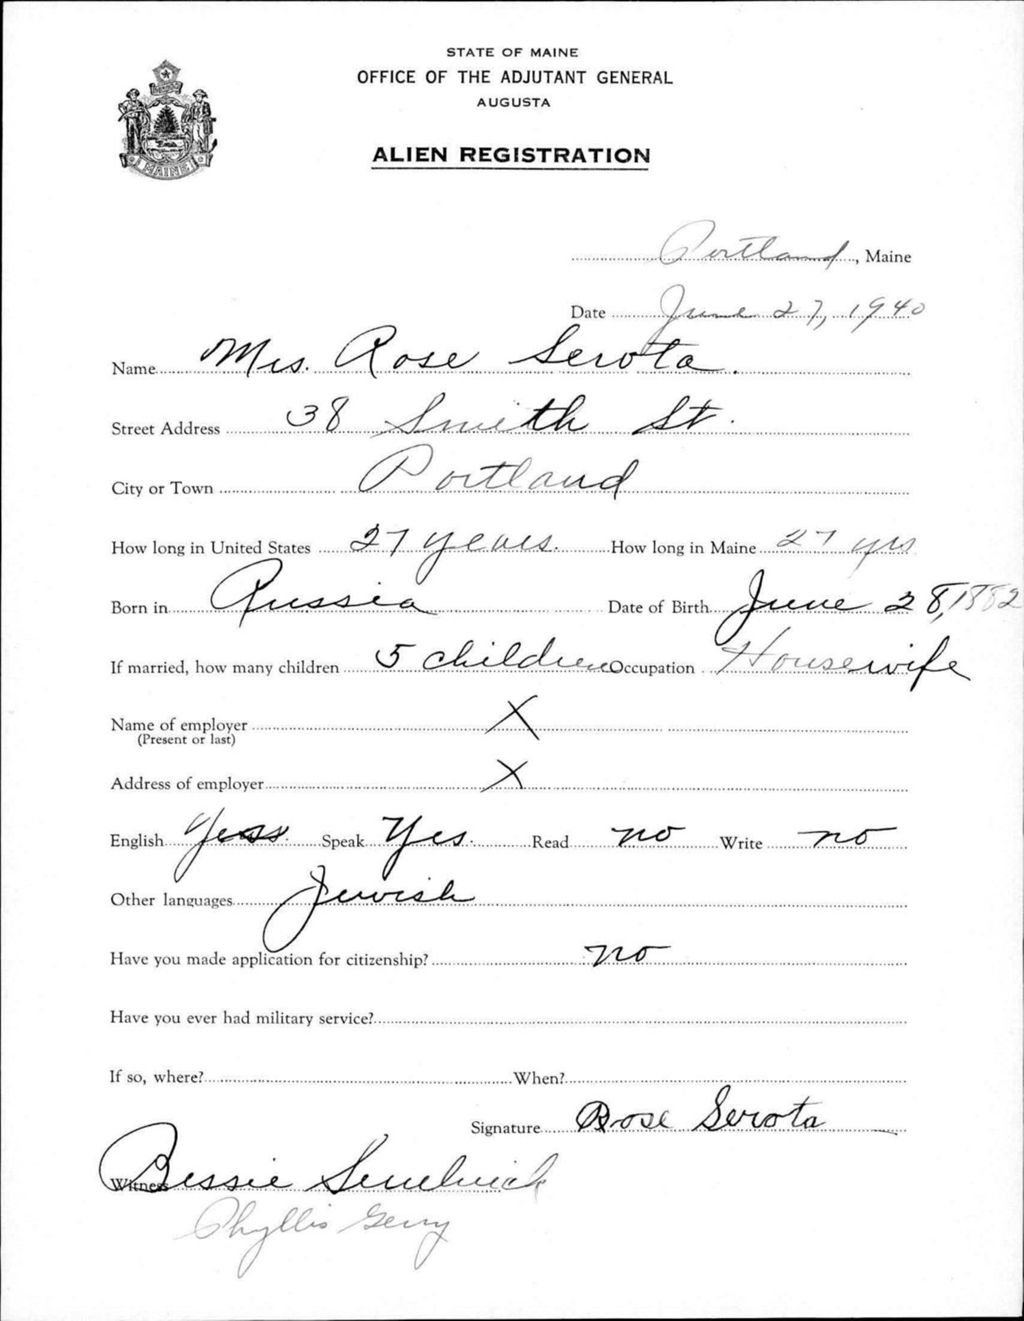 STATE OF MAINE
OFFICE OF THE ADJUTANT GENERAL
AUGUSTA
ALIEN REGISTRATION
MAINE
Portland, Maine
Date June 27, 1940
Name Mrs. Rose Serota.
Street Address 38 Smith St.
City or Town Portland
How long in United States 27 years. How long in Maine 27 yrs
Born in Russia Date of Birth June 28, 1882
If married, how many children 5 children Occupation Housewife
Name of employer X
(Present or last)
Address of employer X
English Yess. Speak Yes. Read no Write no
Other languages Jewish
Have you made application for citizenship? no
Have you ever had military service?
If so, where? When?
Signature Rose Serota
Witness Bessie
Phyllis Gerry